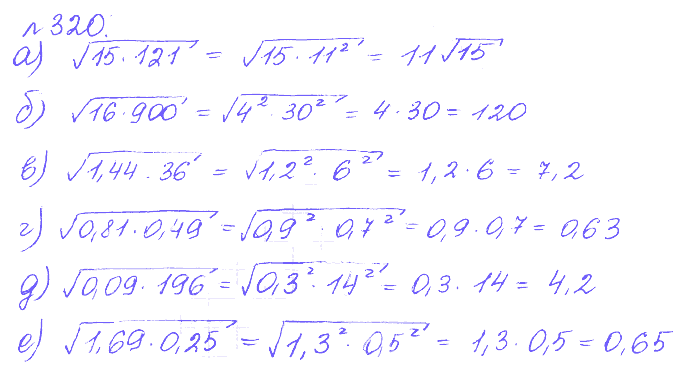 № 320.
а) √15 · 121 = √15 · 11² = 11√15
б) √16 · 900 = √4² · 30² = 4 · 30 = 120
в) √1,44 · 36 = √1,2² · 6² = 1,2 · 6 = 7,2
г) √0,81 · 0,49 = √0,9² · 0,7² = 0,9 · 0,7 = 0,63
д) √0,09 · 196 = √0,3² · 14² = 0,3 · 14 = 4,2
е) √1,69 · 0,25 = √1,3² · 0,5² = 1,3 · 0,5 = 0,65